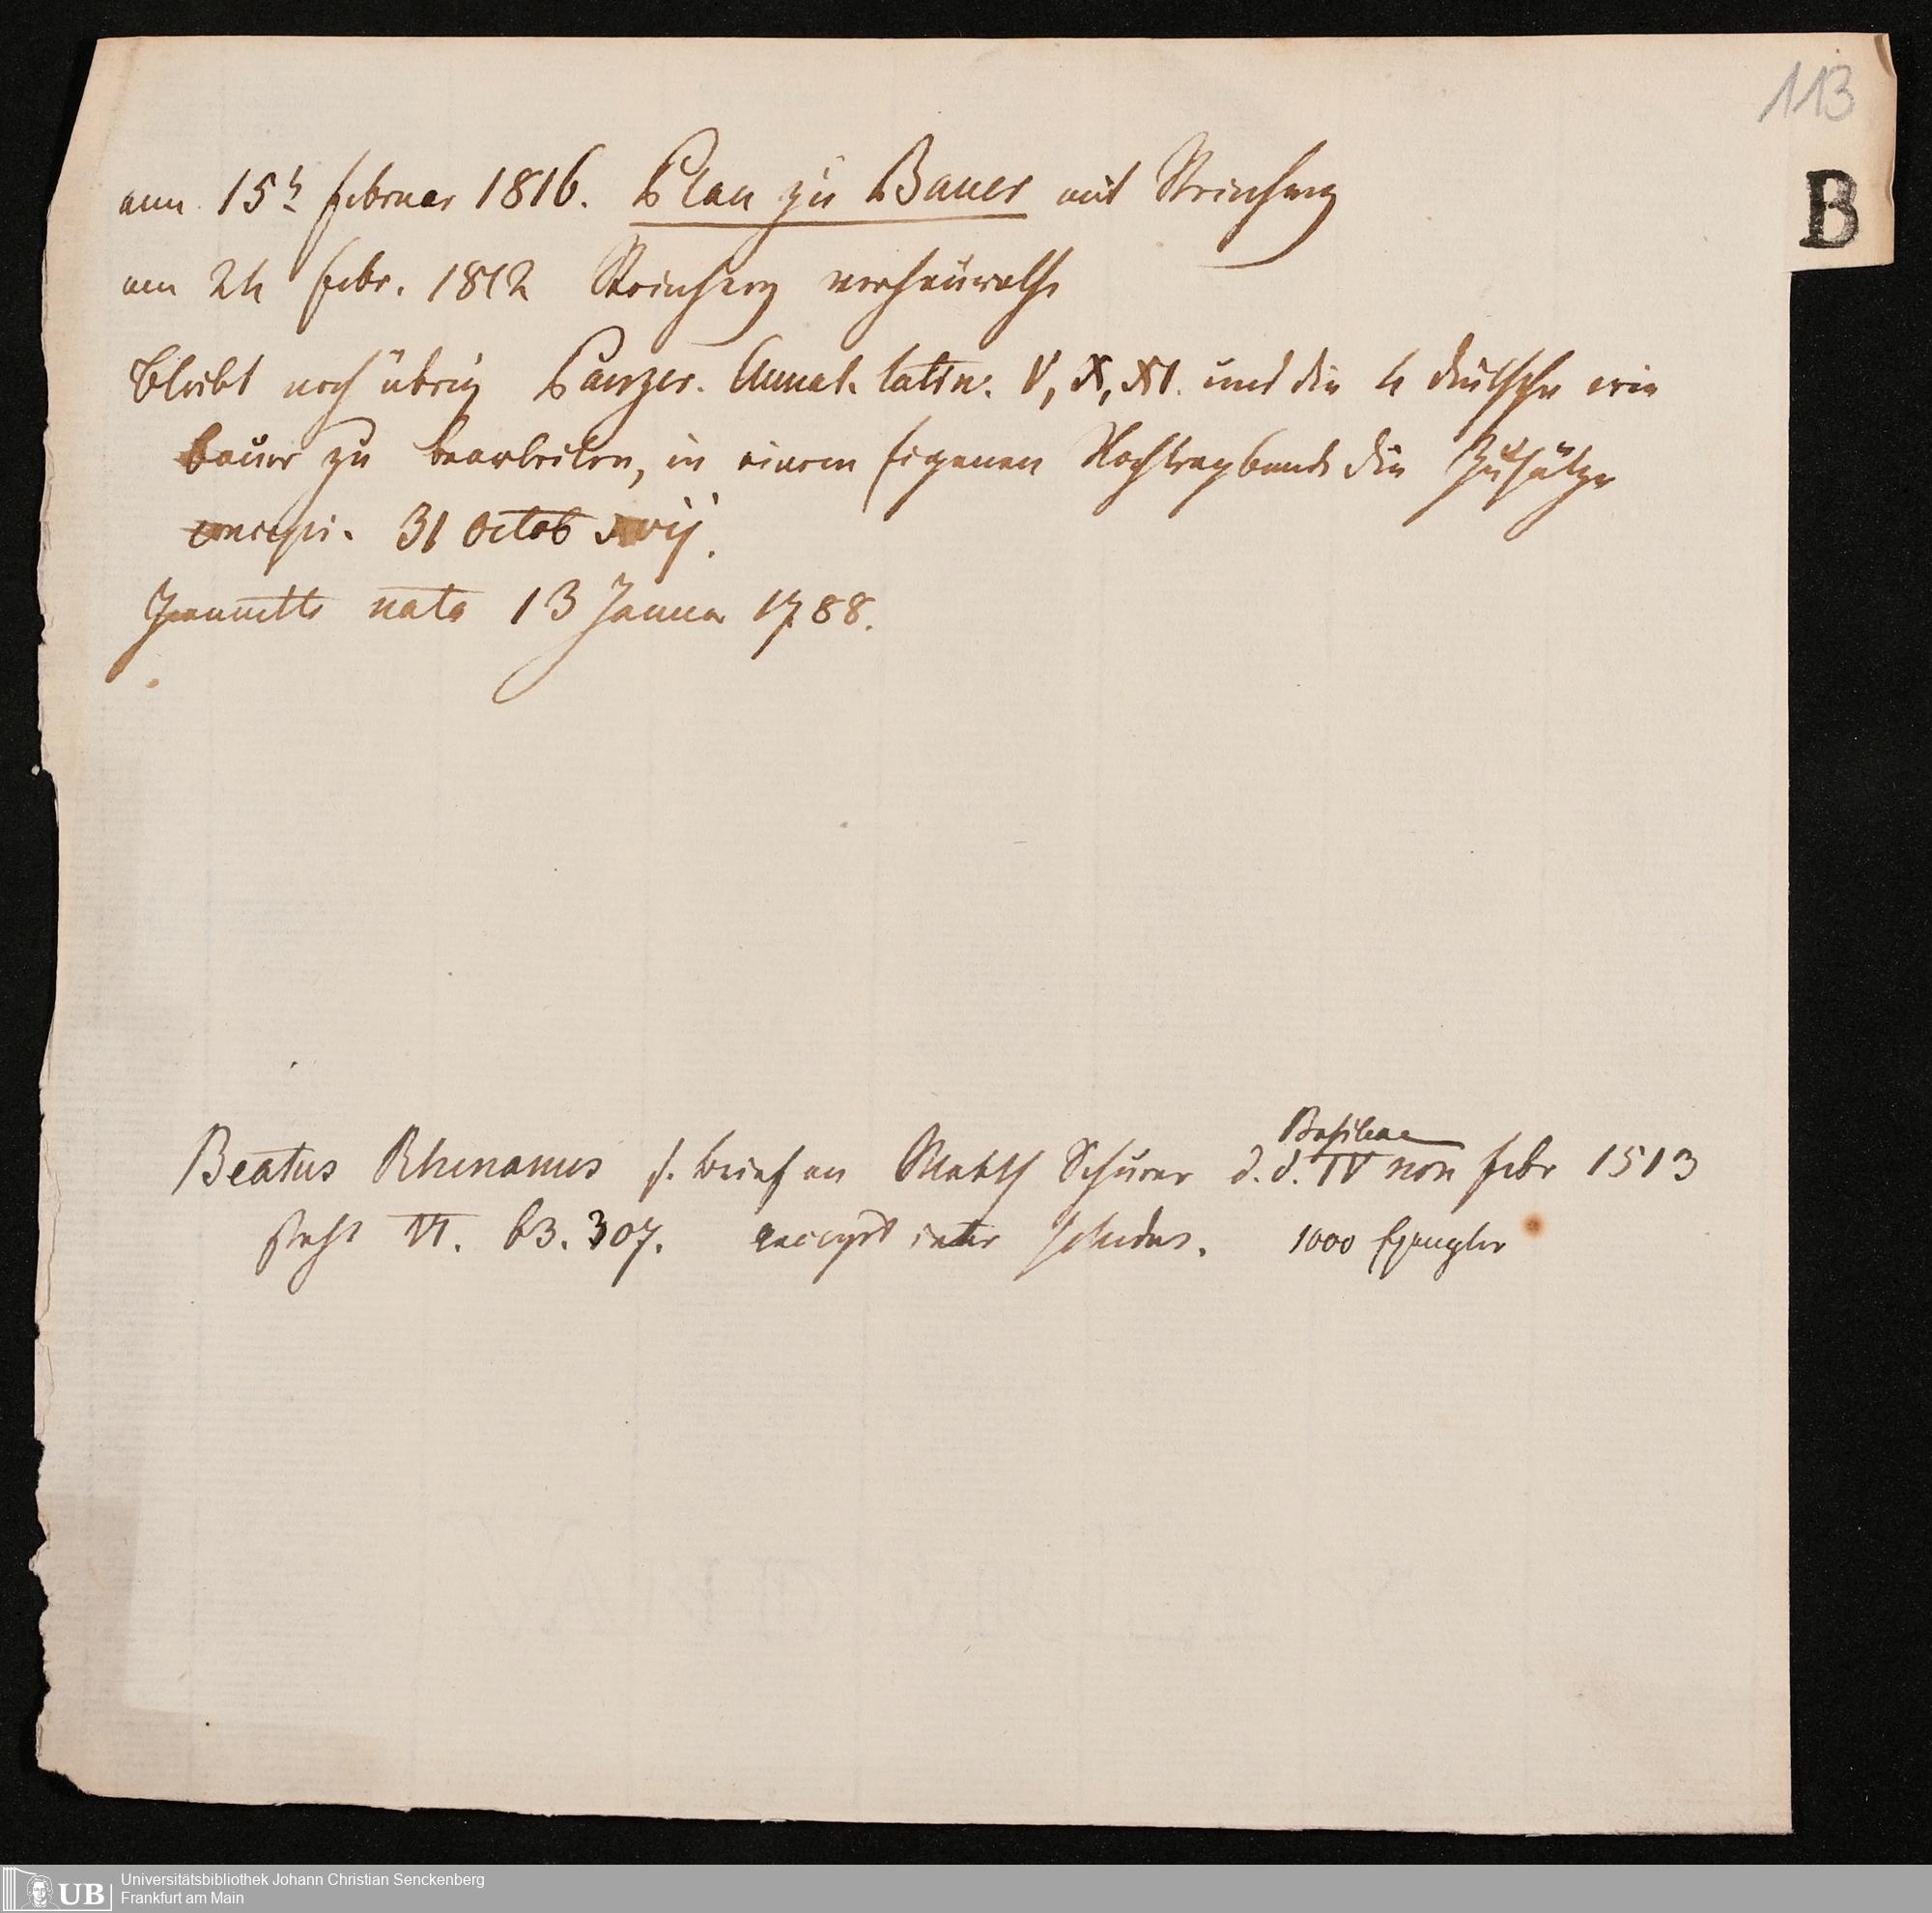 113
B
am 15t februar 1816. Plan zu Bauer mit Steinheng
am 24 febr. 1812 Steinheng verheurathe
bleibt noch übrig Panzer. Annal. latin. V, X, XI. und die 4 deutsche wie
bauer zu bearbeiten, in einem eigenen Nachtragbande die Zusätze
concepi. 31 Octob xvij.
Jeannette nata 13 Janua 1788.
Basileae
Beatus Rhenanus s. brief an Math Schürer d. d. IV non febr 1513
steht VI. 63. 307. excerpt inter schedas. 1000 Exempler
Universitätsbibliothek Johann Christian Senckenberg
UB Frankfurt am Main